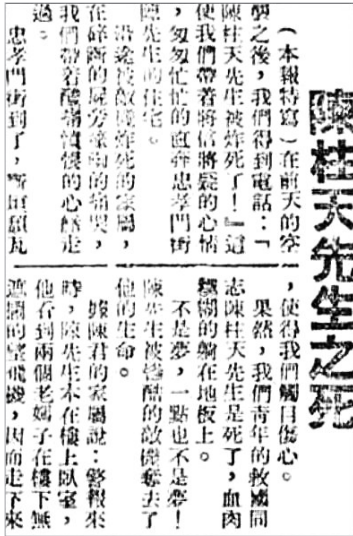 陳桂天先生之死
（本報特寫）在前天的空
襲之後，我們得到電話：「
陳桂天先生被炸死了！」這
使我們帶着將信將疑的心情
，匆匆忙忙的直奔忠孝門街
陳先生的住宅。
沿途被敵機炸死的家屬，
在碎斷的屍旁淒慘的痛哭，
我們帶着酸痛憤恨的心經走
過。
忠孝門街到了，斷垣頹瓦
，使得我們觸目傷心。
果然，我們青年的救國同
志陳桂天先生是死了，血肉
糢糊的躺在地板上。
不是夢，一點也不是夢！
陳先生被慘酷的敵機奪去了
他的生命。
據陳君的家屬說：警報來
時，陳先生本在樓上臥室，
他看到兩個老媽子在樓下無
遮攔的望飛機，因而走下來